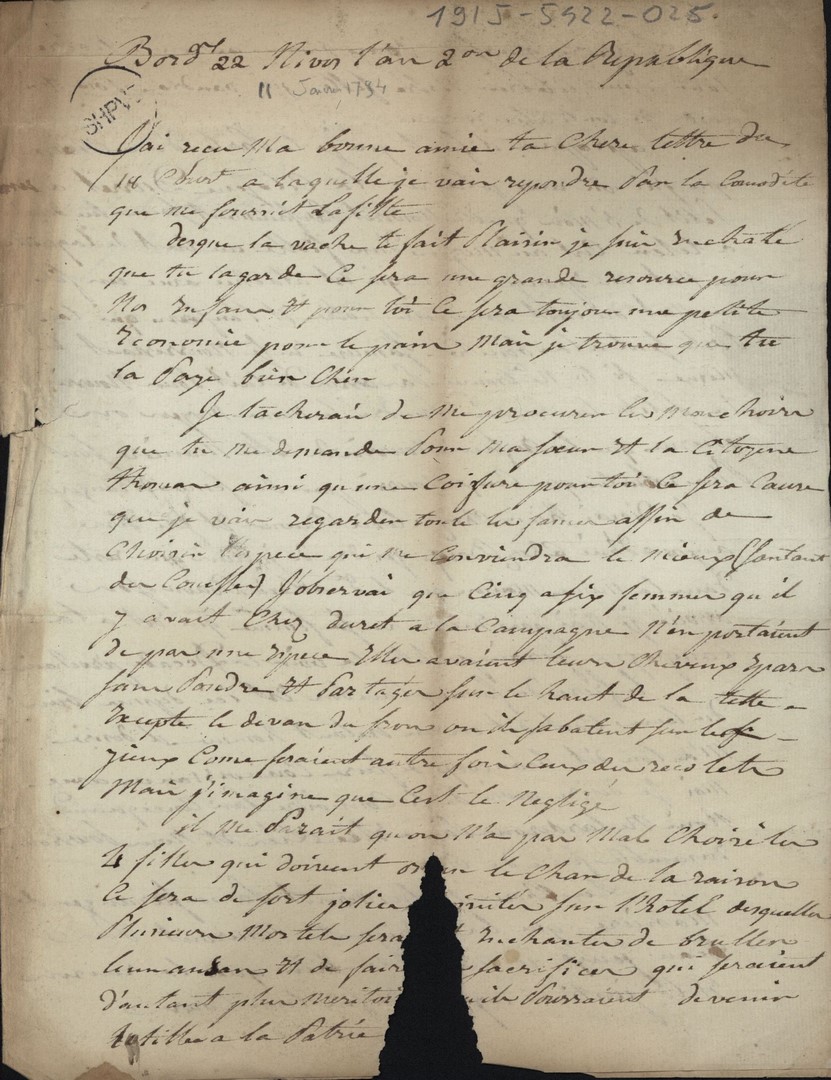 1915-5922-025.
Bord.x 22 Nivos l'an 2on de la Republique
11 Janv. 1794
SHPVF
J'ai recu Ma bonne amie ta Chere lettre du
18 Court a laquelle je vais repondre Par la Comodite
que me fournit Lafitte
desque la vache te fait Plaisir je suis Enchate
que tu la garde Ce sera une grande resource pour
Nos Enfans Et pour toi Ce sera toujour une petite
Economie pour le pain Mais je trouve que tu
la Paye bien Cher
Je tacherai de Me procurer les Mouchoirs
que tu me demande Pour Ma soeur Et la Citoyene
thouar ainsi qu'une Coifure pour toi Ce sera Cause
que je vais regarder toute les fames affin de
Choisir l'espece qui me Conviendra le Mieux (sautant
des ) J'observai que Cinq a six femmes qu'il
y avait Chez duret a la Campagne N'en portaient
de pas une Espece Elles avaient leurs Cheveux Epars
sans Poudre Et Partages sur le haut de la tette
Excepte le devan du fron ou ils sabatent sur les
yieux Come feraient autre fois Ceux des recolets
Mais j'imagine que C'est le Negligé
il Me Parait qu'on N'a pas Mal Choisi les
4 filles qui doivent le Char de la raison
Ce sera de fort jolies sur l'hotel desquelles
Plusieurs Mortels Enchantes de bruller
leur ansan Et de sacrifices qui seraient
d'autant plus Pourraient devenir
a la Patrie